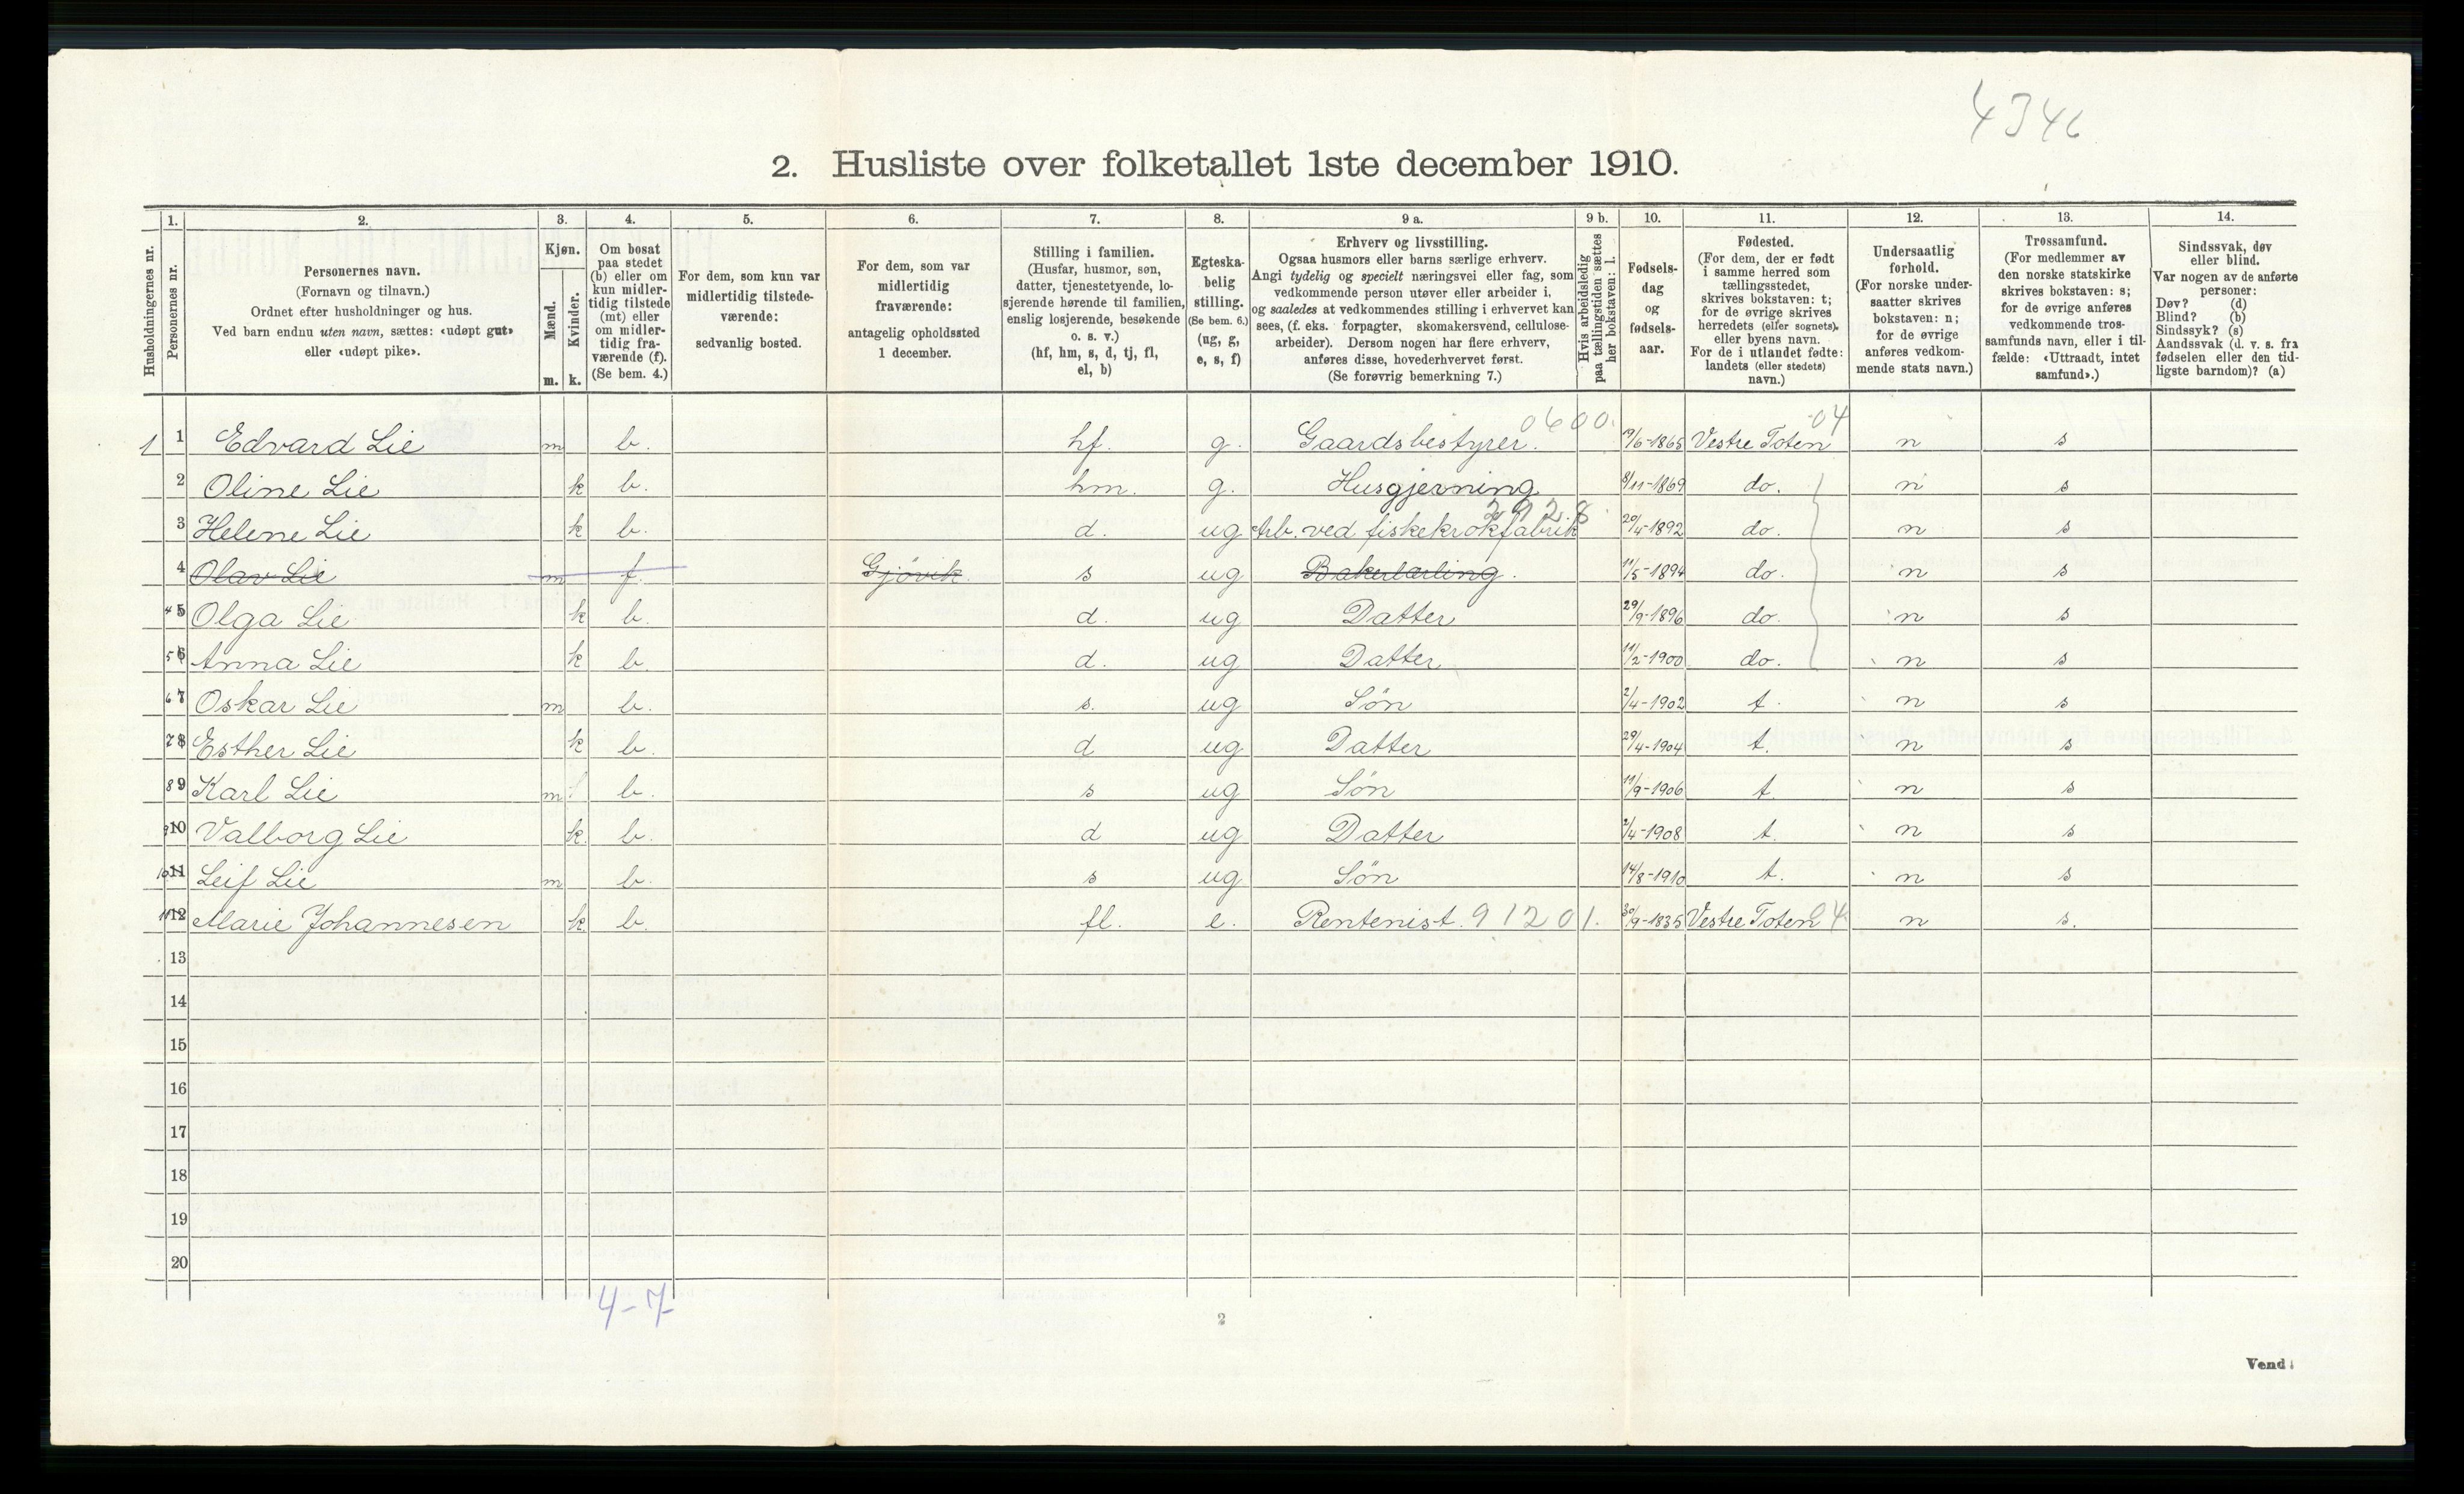 4346
2. Husliste over folketallet 1ste december 1910.
Husholdningernes nr.
1.
Personernes nr.
2.
Personernes navn.
(Fornavn og tilnavn.)
Ordnet efter husholdninger og hus.
Ved barn endnu uten navn, sættes: «udøpt gut»
eller «udøpt pike».
3.
Kjøn.
Mænd.
Kvinder.
m. k.
4.
Om bosat
paa stedet
(b) eller om
kun midler-
tidig tilstede
(mt) eller
om midler-
tidig fra-
værende (f).
(Se bem. 4.)
5.
For dem, som kun var
midlertidig tilstede-
værende:
sedvanlig bosted.
6.
For dem, som var
midlertidig
fraværende:
antagelig opholdssted
1 december.
7.
Stilling i familien.
(Husfar, husmor, søn,
datter, tjenestetyende, lo-
sjerende hørende til familien,
enslig losjerende, besøkende
o. s. v.)
(hf, hm, s, d, tj, fl,
el, b)
8.
Egteska-
belig
stilling.
(Se bem. 6.)
(ug, g,
e, s, f)
9 a.
Erhverv og livsstilling.
Ogsaa husmors eller barns særlige erhverv.
Angi tydelig og specielt næringsvei eller fag, som
vedkommende person utøver eller arbeider i,
og saaledes at vedkommendes stilling i erhvervet kan
sees, (f. eks. forpagter, skomakersvend, cellulose-
arbeider). Dersom nogen har flere erhverv,
anføres disse, hovederhvervet først.
(Se forøvrig bemerkning 7.)
9 b.
Hvis arbeidsledig
paa tællingstiden sættes
her bokstaven: l.
10.
Fødsels-
dag
og
fødsels-
aar.
11.
Fødested.
(For dem, der er født
i samme herred som
tællingsstedet,
skrives bokstaven: t;
for de øvrige skrives
herredets (eller sognets),
eller byens navn.
For de i utlandet fødte:
landets (eller stedets)
navn.)
12.
Undersaatlig
forhold.
(For norske under-
saatter skrives
bokstaven: n;
for de øvrige
anføres vedkom-
mende stats navn.)
13.
Trossamfund.
(For medlemmer av
den norske statskirke
skrives bokstaven: s;
for de øvrige anføres
vedkommende tros-
samfunds navn, eller i til-
fælde: «Uttraadt, intet
samfund».)
14.
Sindssvak, døv
eller blind.
Var nogen av de anførte
personer:
Døv? (d)
Blind? (b)
Sindssyk? (s)
Aandssvak (d. v. s. fra
fødselen eller den tid-
ligste barndom)? (a)
1 1 Edvard Lie m b. hf. g. Gaardsbestyrer. 0600. 19/6-1865 Vestre Toten 04 n s
2 Oline Lie k b. hm. g. Husgjerning 8/11-1869 do. n s
3 Helene Lie k b. d. ug Arb. ved fiskekrokfabrik 2928 20/4-1892 do. n s
4 Olav Lie m f. Gjøvik s ug Bakerlærling. 11/5-1894 do. n s
4 5 Olga Lie k b. d. ug Datter 29/9-1896 do. n s
5 6 Anna Lie k b. d. ug Datter 11/2-1900 do. n s
6 7 Oskar Lie m b. s. ug Søn 2/4-1902 t. n s
7 8 Esther Lie k b. d ug Datter 29/4-1904 t. n s
8 9 Karl Lie m b. s ug Søn 11/9-1906 t. n s
9 10 Valborg Lie k b. d ug Datter 2/4-1908 t. n s
10 11 Leif Lie m b. s ug Søn 14/8-1910 t. n s
11 12 Marie Johannesen k b. fl. e. Rentenist. 91201. 30/9-1835 Vestre Toten 04 n s.
13
14
15
16
17
18
19
20
4-7
2
Vend!